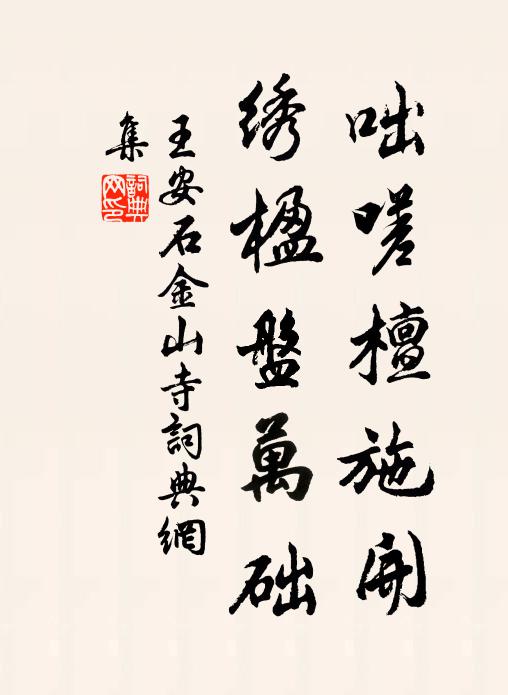 咄嗟檀施開
绣楹盤萬础
王安石金山寺詞典網
集
詞典網印